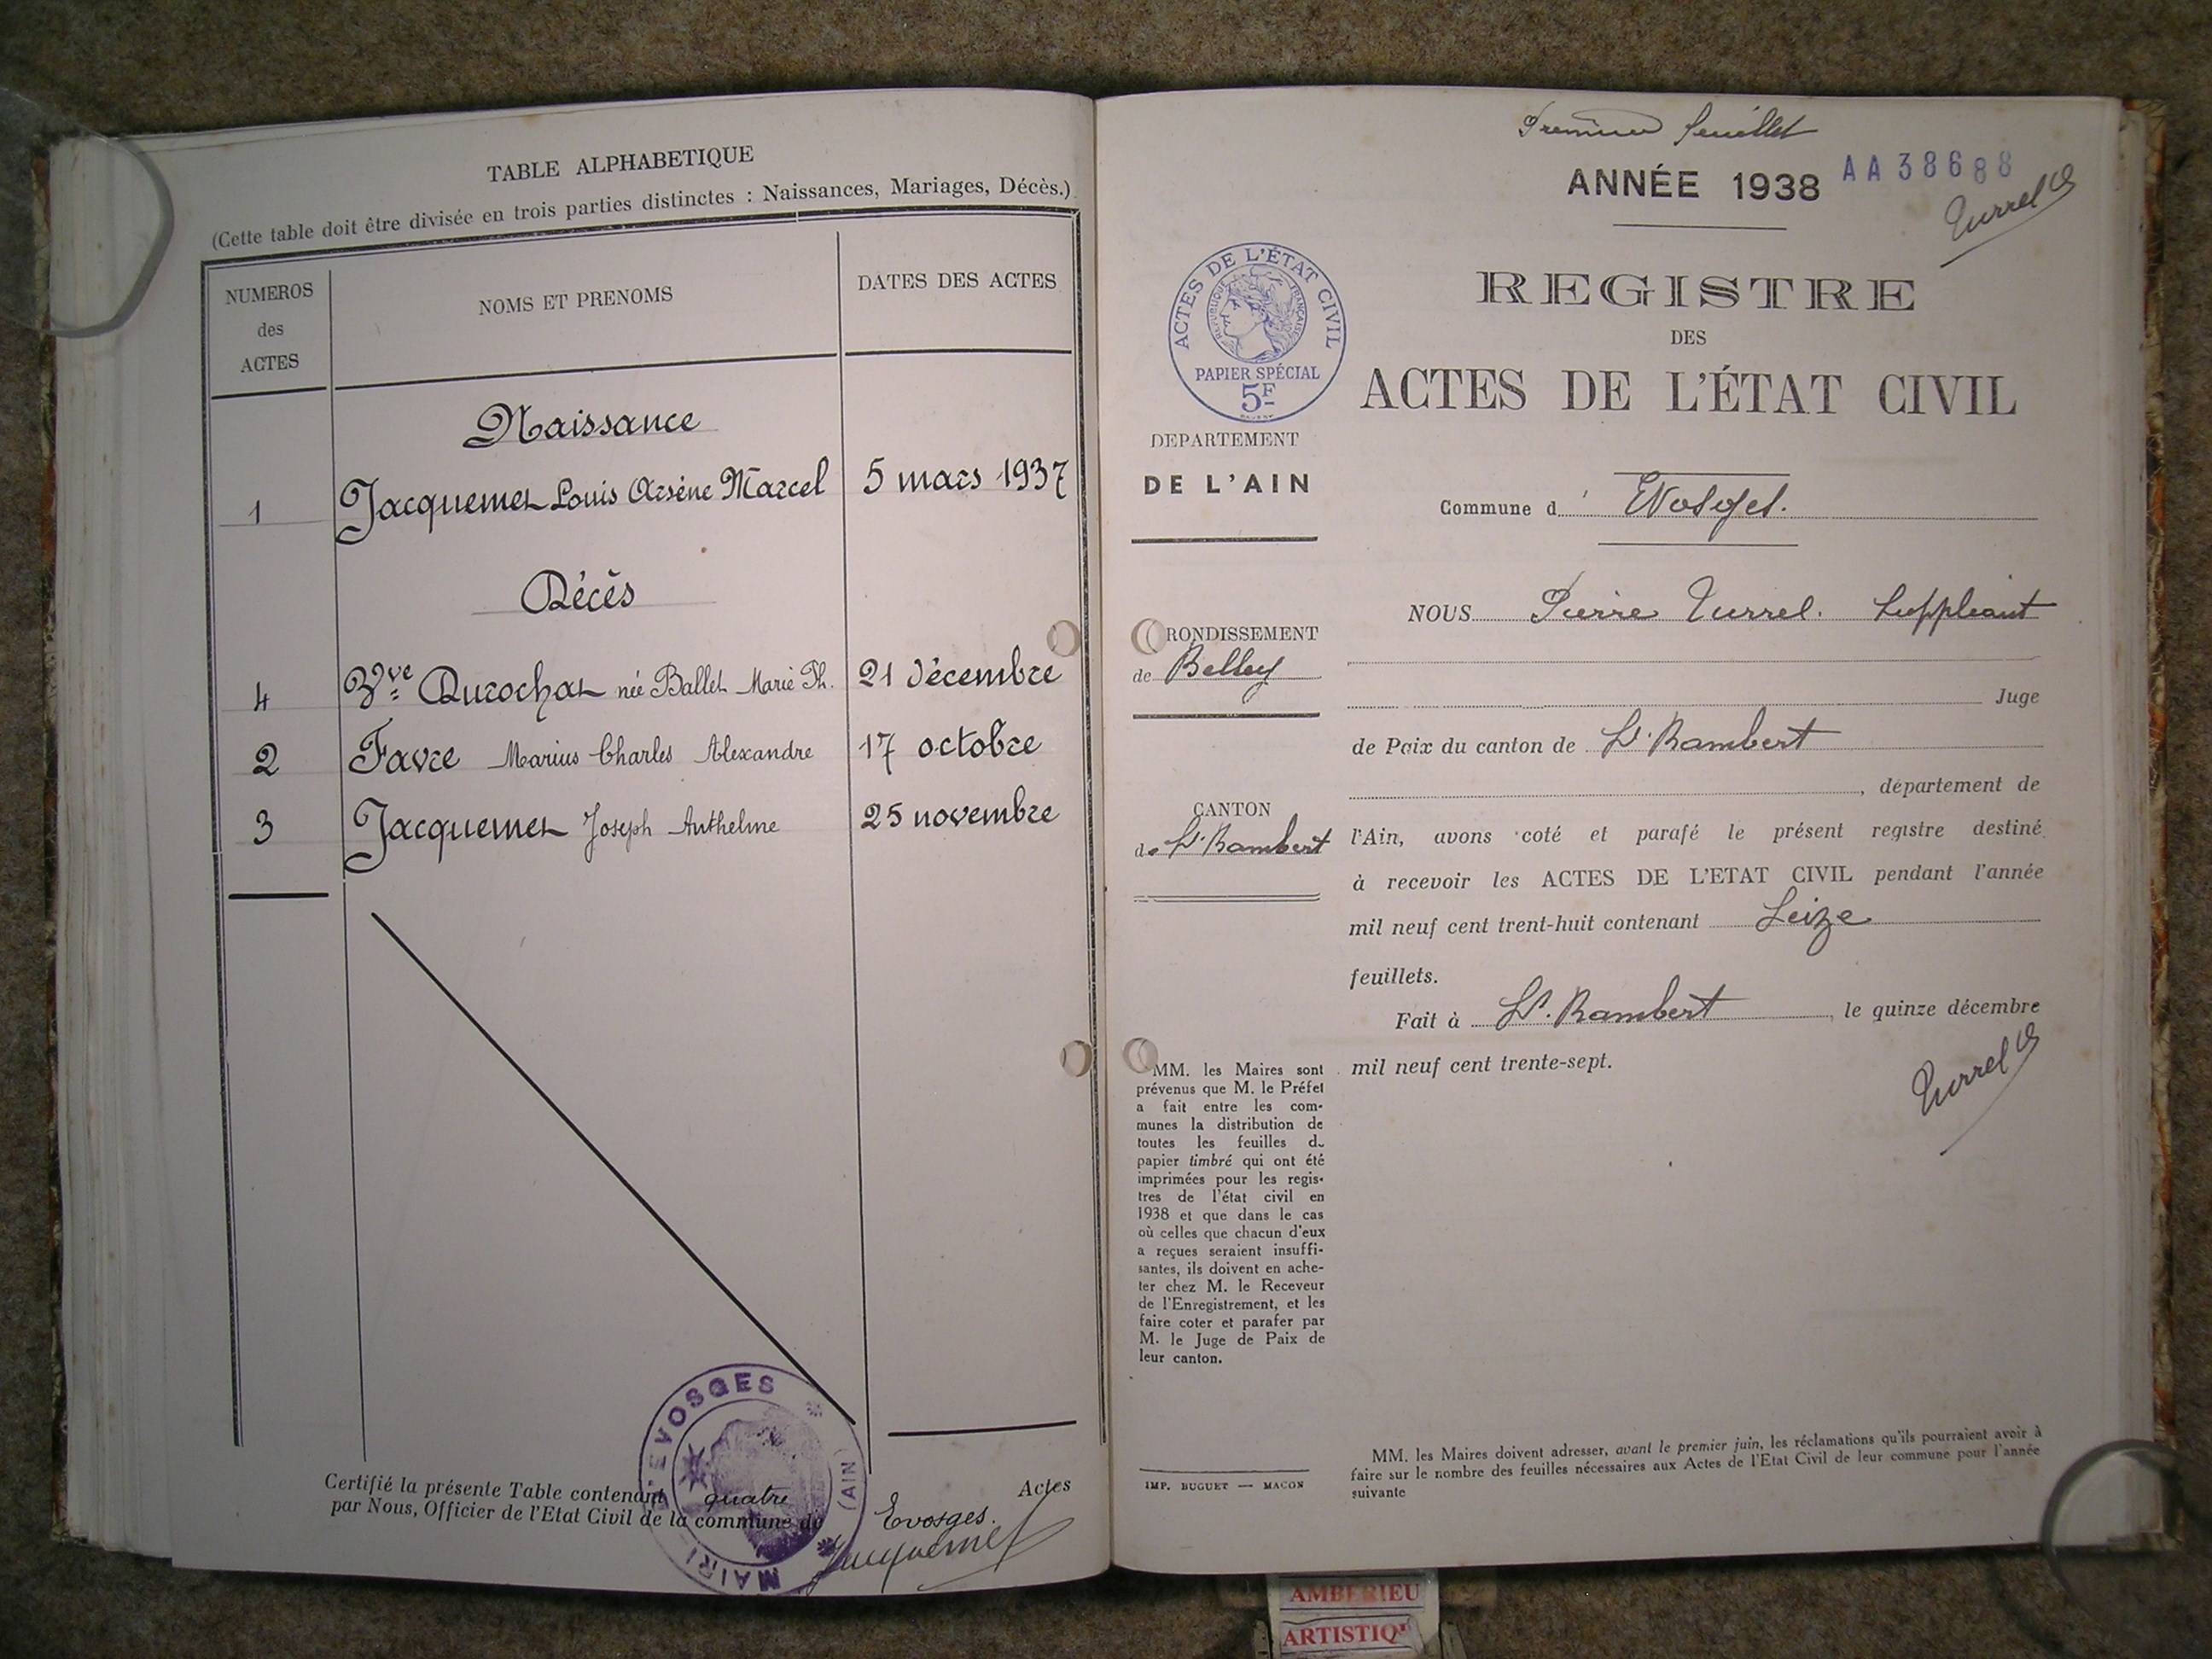 TABLE ALPHABETIQUE
(Cette table doit être divisée en trois parties distinctes : Naissances, Mariages, Décès.)
NUMEROS des ACTES
NOMS ET PRENOMS
DATES DES ACTES
Naissance
1 Jacquemet Louis Arsène Marcel 5 mars 1937
Décès
4 Vve Durochat née Ballet Marie Th. 21 décembre
2 Favre Marius Charles Alexandre 17 octobre
3 Jacquemet Joseph Anthelme 25 novembre
Certifié la présente Table contenant quatre Actes
par Nous, Officier de l'Etat Civil de la commune de Evosges.
Jacquemet
MAIRIE D'EVOSGES (AIN)
Premier feuillet
ANNÉE 1938 AA38688
Turrel
ACTES DE L'ÉTAT CIVIL
RÉPUBLIQUE FRANÇAISE
PAPIER SPÉCIAL
5F
REGISTRE
DES
ACTES DE L'ÉTAT CIVIL
DEPARTEMENT
DE L'AIN
Commune d' Evosges.
NOUS Pierre Turrel. Suppléant
RONDISSEMENT
de Belley
Juge
de Paix du canton de St. Rambert
, département de
CANTON
de St. Rambert
l'Ain, avons coté et parafé le présent registre destiné
à recevoir les ACTES DE L'ETAT CIVIL pendant l'année
mil neuf cent trent-huit contenant Seize
feuillets.
Fait à St. Rambert, le quinze décembre
mil neuf cent trente-sept.
Turrel
MM. les Maires sont
prévenus que M. le Préfet
a fait entre les com-
munes la distribution de
toutes les feuilles de
papier timbré qui ont été
imprimées pour les regis-
tres de l'état civil en
1938 et que dans le cas
où celles que chacun d'eux
a reçues seraient insuffi-
santes, ils doivent en ache-
ter chez M. le Receveur
de l'Enregistrement, et les
faire coter et parafer par
M. le Juge de Paix de
leur canton.
IMP. BUGUET — MACON
MM. les Maires doivent adresser, avant le premier juin, les réclamations qu'ils pourraient avoir à
faire sur le nombre des feuilles nécessaires aux Actes de l'Etat Civil de leur commune pour l'année
suivante
AMBERIEU
ARTISTIQ